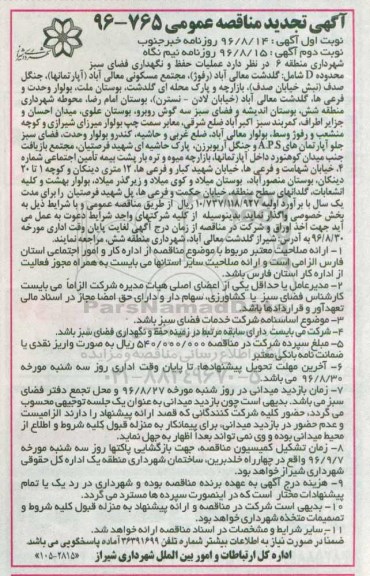 آگهی تجدید مناقصه عمومی ۷۶۵-۹۶
نوبت اول آگهی : ۹۶/۸/۱۴ روزنامه خبرجنوب
نوبت دوم آگهی : ۹۶/۸/۱۵ روزنامه نیم نگاه
شهرداری منطقه ۶ در نظر دارد عملیات حفظ و نگهداری فضای سبز
محدوده D شامل: گلدشت معالی آباد (رفوژ)، مجتمع مسکونی معالی آباد (آپارتمانها)، جنگل
صدف (نبش خیابان صدف)، بازارچه و پارک محله ای گلدشت، بوستان ملت، بولوار وحدت و
فرعی ها، گلدشت معالی آباد (خیابان لادن - نسترن)، بوستان امام رضا، محوطه شهرداری
منطقه شش، بوستان اندیشه و فضای سبز سه گوش روبرو، بوستان علوی، میدان احسان و
جزایر اطراف، کمربند سبز اکبر آباد ضلع شرقی، معابر سمت چپ بولوار میرزای شیرازی و کوچه
منشعب و رفوژ وسط، بولوار معالی آباد، ضلع غربی و حاشیه، کندرو بولوار وحدت، فضای سبز
جلو آپارتمان های A.P.S و جنگل آریوبرزن، پارک حاشیه ای شهید فرصتیان، مجتمع بازیافت
جنب میدان کوهنورد داخل آپارتمانها، بازارچه میوه و تره بار پشت بیمه تأمین اجتماعی شماره
۱، خیابان شهامت و فرعی ها، خیابان شهید کبار و فرعی ها، ۱۲ متری دینکان و کوچه ۱ تا ۲۰
دینکان، بوستان منصور آباد، بوستان میلاد و کوی میلاد و زیرگذر میلاد، بولوار بهشت و کلیه
انشعابات، گلدانهای سطح منطقه، خیابان حکمت و فرعی ها، پل شهید فرصتیان را برای مدت
یک سال با برآورد اولیه ۱۰/۷۳۷/۱۱۸/۹۲۷ ریال از طریق مناقصه عمومی و با شرایط ذیل به
بخش خصوصی واگذار نماید. بدینوسیله از کلیه شرکتهای واجد شرایط دعوت به عمل می
آید جهت اخذ اوراق و شرکت در مناقصه از زمان درج آگهی لغایت پایان وقت اداری مورخه
۹۶/۸/۳۰ به آدرس: شیراز گلدشت معالی آباد، شهرداری منطقه شش، مراجعه نمایند.
۱- ارائه صلاحیت معتبر مربوط با موضوع مناقصه از اداره کار و امور اجتماعی استان
فارس الزامی است و ارائه صلاحیت سایر استانها می بایست به همراه مجوز فعالیت
از اداره کار استان فارس باشد.
۲- مدیرعامل یا حداقل یکی از اعضای اصلی هیات مدیره شرکت الزاماً می بایست
کارشناس فضای سبز یا کشاورزی، سهام دار و دارای حق امضا مجاز در اسناد مالی
تعهدآور و قراردادها باشد.
۳- موضوع اساسنامه شرکت خدمات فضای سبز باشد.
۴- شرکت می بایست دارای سابقه مرتبط در زمینه حفظ و نگهداری فضای سبز باشد.
۵- مبلغ سپرده شرکت در مناقصه ۵۴۰/۰۰۰/۰۰۰ ریال به صورت واریز نقدی یا
ضمانت نامه بانکی معتبر
۶- آخرین مهلت تحویل پیشنهادها، تا پایان وقت اداری روز سه شنبه مورخه
۹۶/۸/۳۰ می باشد.
۷- زمان بازدید میدانی در روز شنبه مورخه ۹۶/۸/۲۷ و محل تجمع دفتر فضای
سبز می باشد. بدیهی است چون بازدید میدانی به عنوان یک جلسه توجیهی محسوب
می گردد، حضور کلیه شرکت کنندگانی که قصد ارائه پیشنهاد را دارند الزامیست
و عدم حضور در بازدید میدانی، برای پیمانکار به منزله قبول کلیه شروط و اطلاع از
محیط میدانی بوده و وی نمی تواند بعداً اظهار به جهل نماید.
۸- زمان تشکیل کمیسیون مناقصه، جهت بازگشایی پاکتها روز سه شنبه مورخه
۹۶/۹/۷ واقع در چهارراه خلدبرین، ساختمان شهرداری منطقه یک اداره کل حقوقی
شهرداری شیراز خواهد بود.
۹- هزینه درج آگهی به عهده برنده مناقصه بوده و شهرداری در رد یک یا تمام
پیشنهادات مختار است که در اینصورت سپرده ها مسترد می گردد.
۱۰- بدیهی است شرکت در مناقصه و ارائه پیشنهاد به منزله قبول کلیه شروط و
تصمیمات متخذه شهرداری خواهد بود.
۱۱- سایر شرایط و مشخصات در اسناد مناقصه ارائه خواهد شد.
ضمناً در صورت نیاز به اطلاعات بیشتر شماره تلفن ۳۶۳۹۱۶۹۹ آماده پاسخگویی می باشد.
اداره کل ارتباطات و امور بین الملل شهرداری شیراز «۱۰۵-۲۸۱۵»